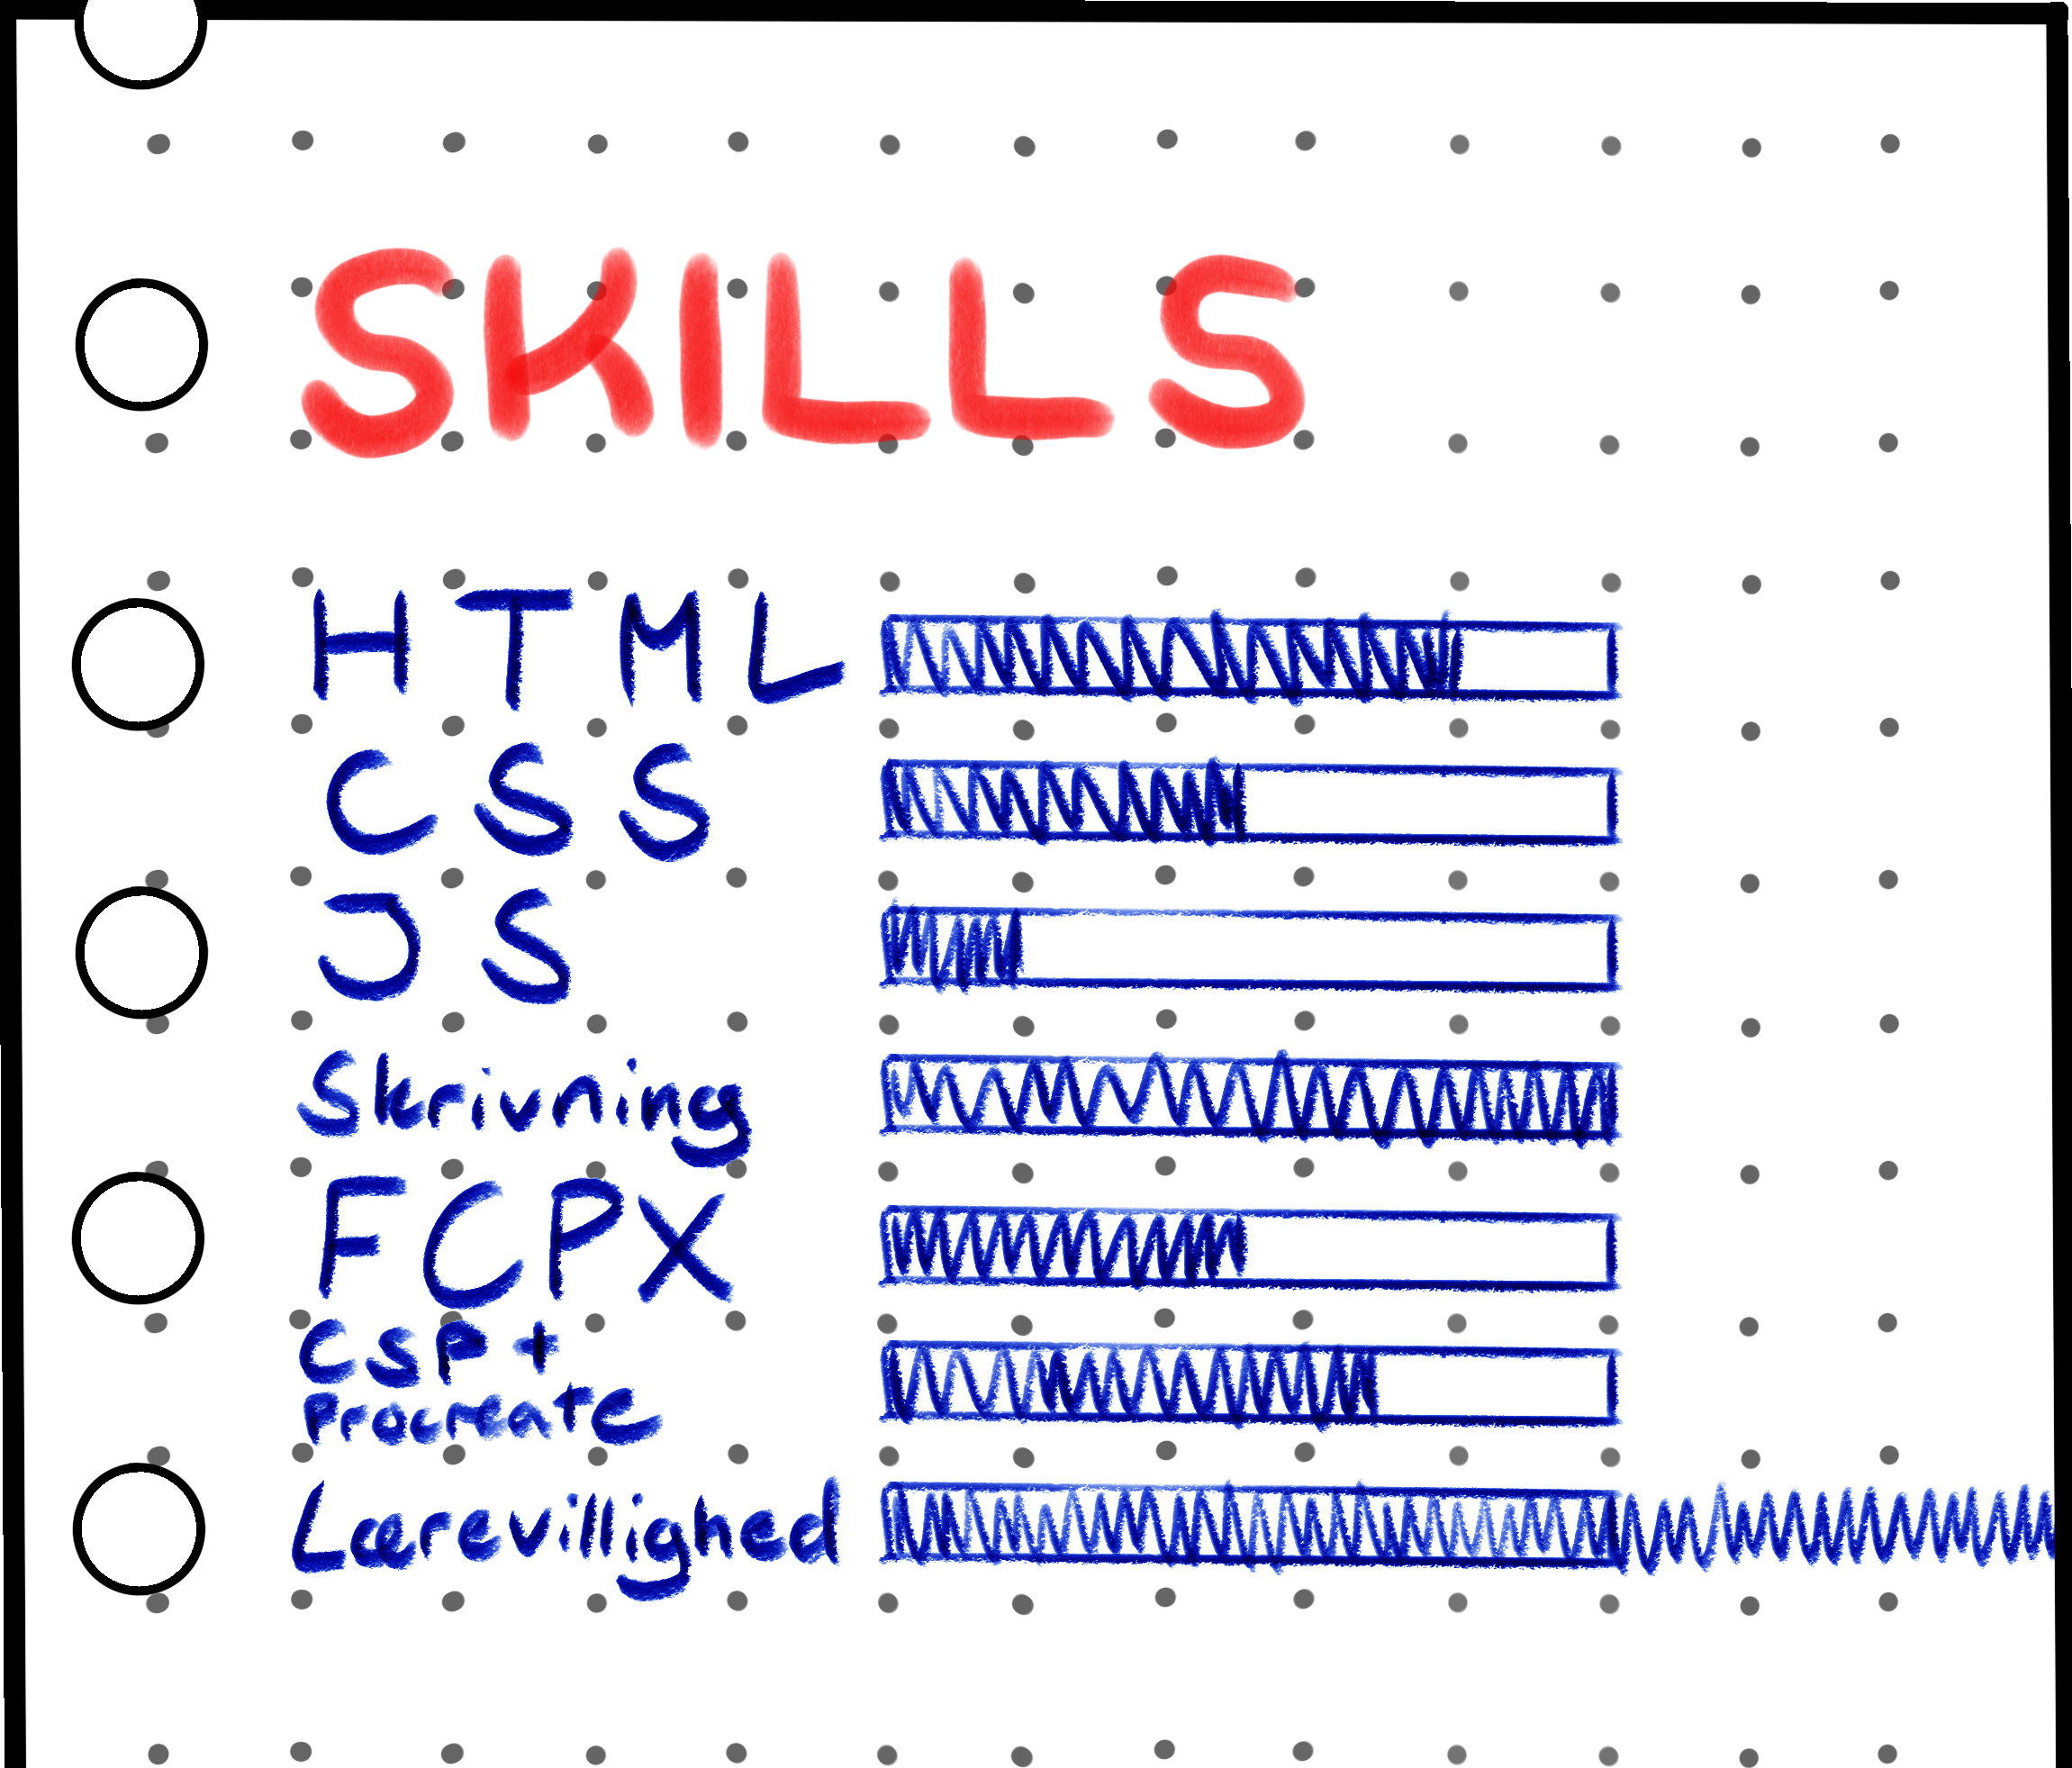 SKILLS
HTML
CSS
JS
Skrivning
FCPX
CSP +
Procreate
Lærevillighed